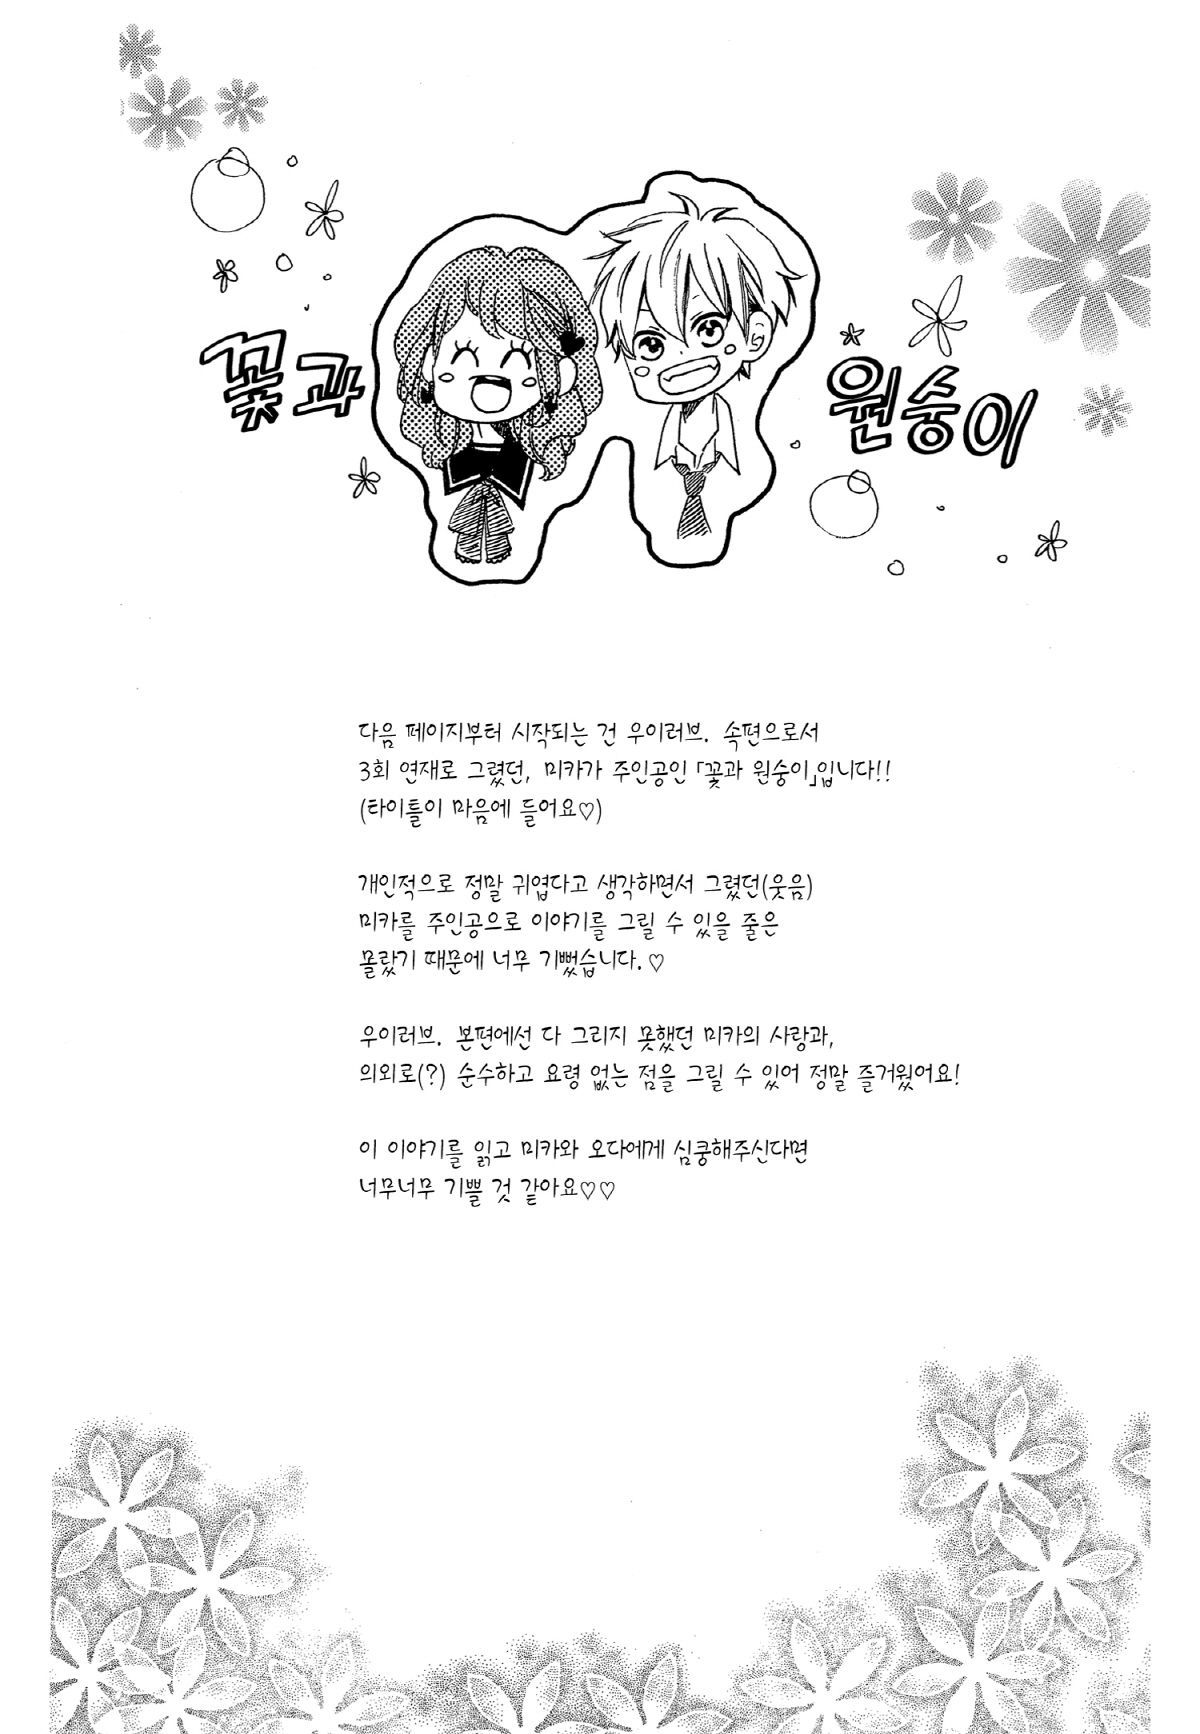 꽃과 원숭이
다음 페이지부터 시작되는 건 우이러브. 속편으로서
3회 연재로 그렸던, 미카가 주인공인 「꽃과 원숭이」입니다!!
(타이틀이 마음에 들어요♡)
개인적으로 정말 귀엽다고 생각하면서 그렸던(웃음)
미카를 주인공으로 이야기를 그릴 수 있을 줄은
몰랐기 때문에 너무 기뻤습니다.♡
우이러브. 본편에선 다 그리지 못했던 미카의 사랑과,
의외로(?) 순수하고 요령 없는 점을 그릴 수 있어 정말 즐거웠어요!
이 이야기를 읽고 미카와 오다에게 심쿵해주신다면
너무너무 기쁠 것 같아요♡♡